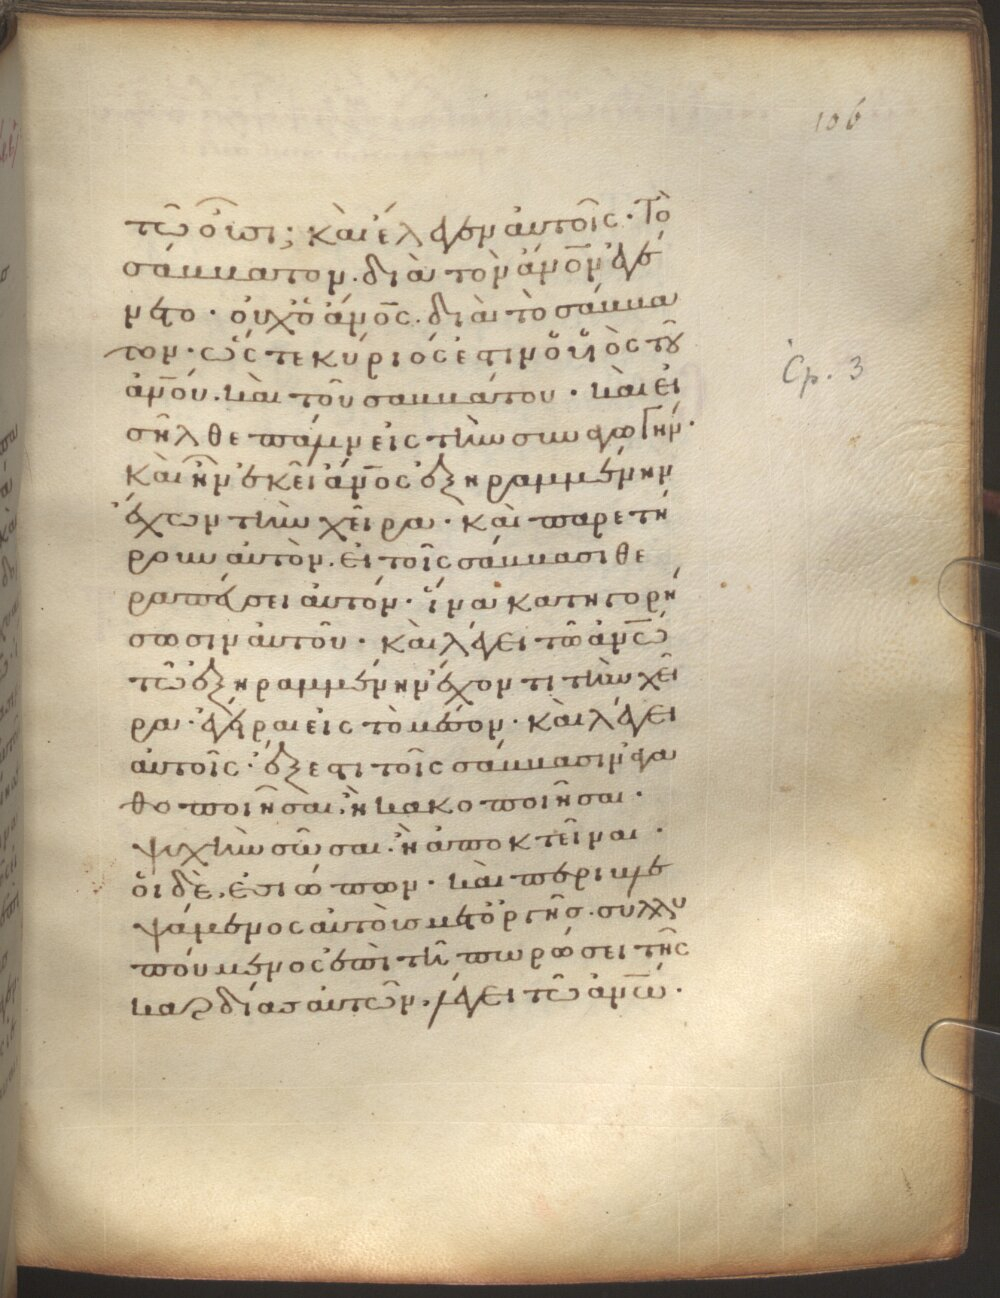 106
τῶ οὖσι; καὶ ἔλεγεν αὐτοῖς· Τὸ
σάββατον. διὰ τὸν ἄν̅ον ἐγέ
νετο· οὐχ ὁ ἄν̅ος. διὰ τὸ σάββα
τον· ὥς τε κύριός ἐστιν ὁ υἱὸς τοῦ
ἀν̅ου. καὶ τοῦ σαββάτου· καὶ εἰ
σῆλθε πάλιν εἰς τὴν συναγωγήν·
Καὶ ἦν ἐκεῖ ἄν̅ος ἐξηραμμένην
ἔχων τὴν χεῖρα· καὶ παρετή
ρουν αὐτὸν. εἰ τοῖς σάββασι θε
ραπεύσει αὐτόν· ἵνα κατηγορή
σωσιν αὐτοῦ· καὶ λέγει τῶ ἀν̅ω
τῶ ἐξηραμμένην ἔχοντι τὴν χεῖ
ρα· ἔγειραι εἰς τὸ μέσον· καὶ λέγει
αὐτοῖς· ἔξεστι τοῖς σάββασιν ἀγα
θοποιῆσαι. ἢ κακοποιῆσαι·
ψυχὴν σῶσαι. ἢ ἀποκτεῖναι·
οἱ δὲ, ἐσιώπων· καὶ περιβλε
ψάμενος αὐτοὺς μετ' ὀργῆς. συλλυ
πούμενος ἐπὶ τῇ πωρώσει τῆς
καρδίας αὐτῶν. λέγει τῶ ἀν̅ω·
Ср. 3